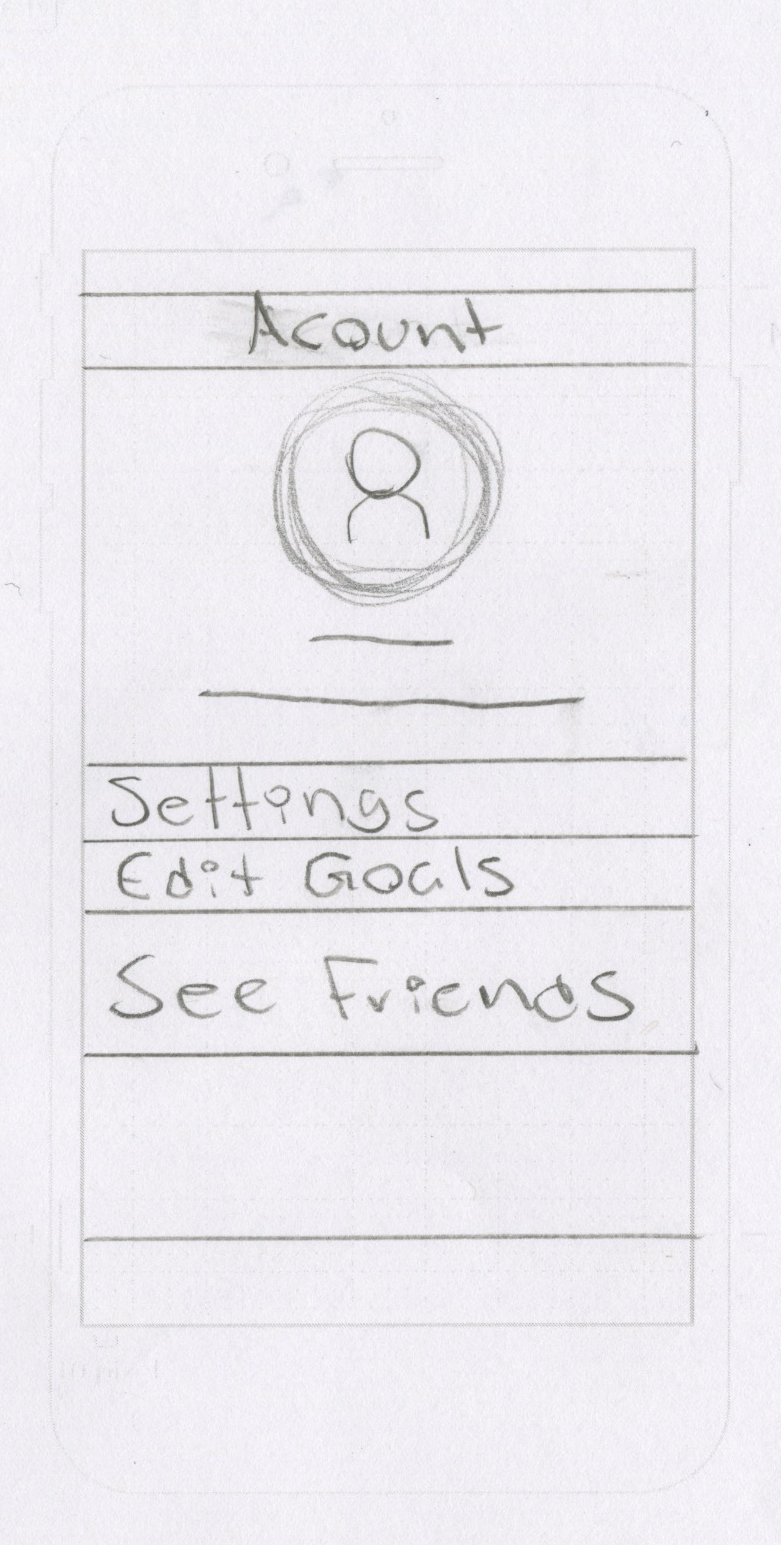 Acount
Settings
Edit Goals
See Friends